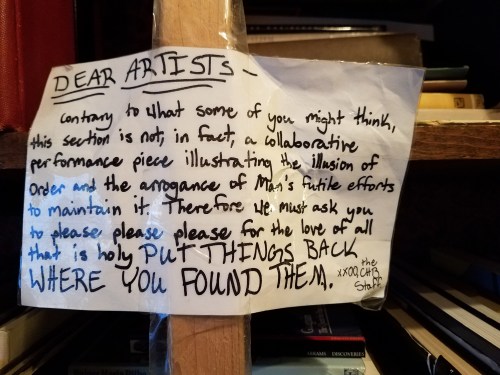 DEAR ARTISTS -
Contrary to what some of you might think,
this section is not, in fact, a collaborative
performance piece illustrating the illusion of
Order and the arrogance of Man's futile efforts
to maintain it. Therefore we must ask you
to please please please for the love of all
that is holy PUT THINGS BACK
WHERE YOU FOUND THEM.
xxoo, the
CHB
Staff
DISCOVERIES